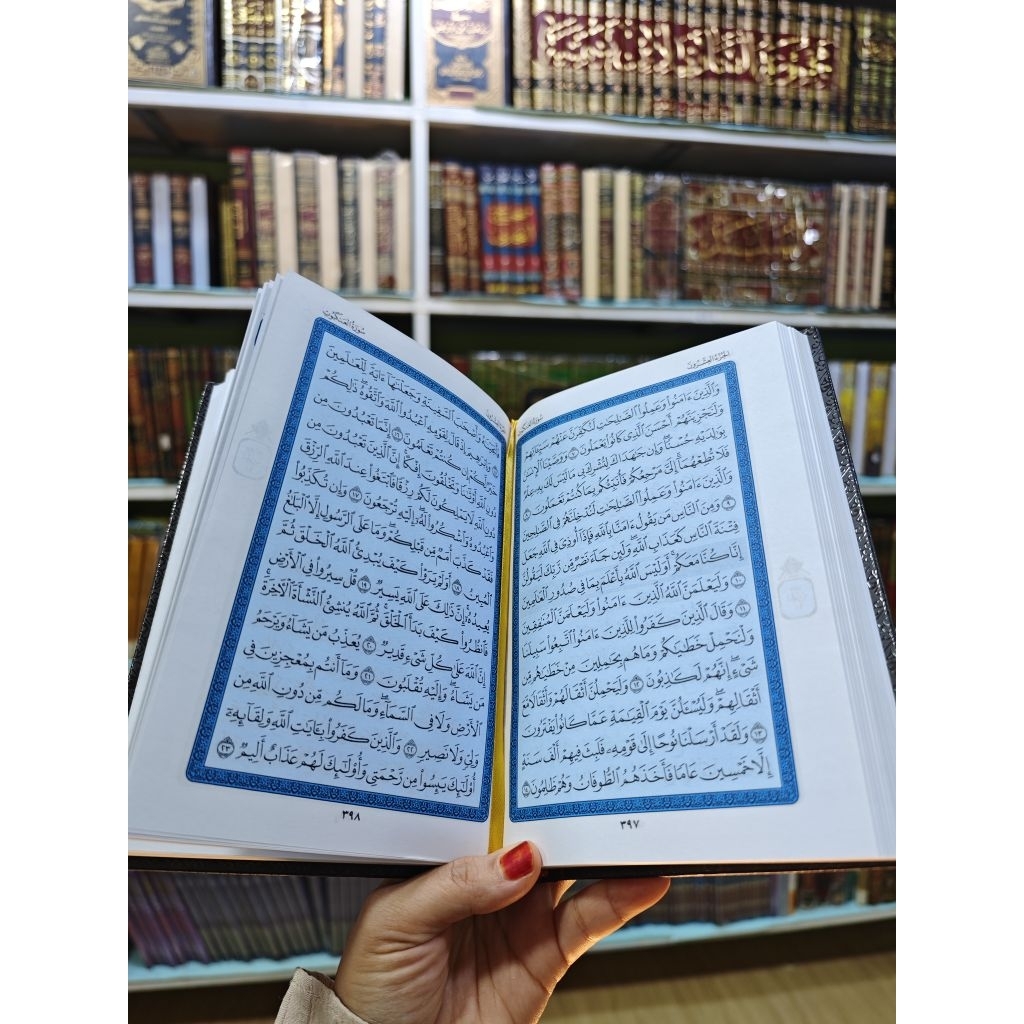 الجُزْءُ العِشْرُونَ
وَٱلَّذِينَ ءَامَنُوا۟ وَعَمِلُوا۟ ٱلصَّـٰلِحَـٰتِ لَنُكَفِّرَنَّ عَنْهُمْ سَيِّـَٔاتِهِمْ
وَلَنَجْزِيَنَّهُمْ أَحْسَنَ ٱلَّذِى كَانُوا۟ يَعْمَلُونَ ٧ وَوَصَّيْنَا ٱلْإِنسَـٰنَ
بِوَٰلِدَيْهِ حُسْنًا ۖ وَإِن جَـٰهَدَاكَ لِتُشْرِكَ بِى مَا لَيْسَ لَكَ بِهِۦ عِلْمٌ
فَلَا تُطِعْهُمَآ ۚ إِلَىَّ مَرْجِعُكُمْ فَأُنَبِّئُكُم بِمَا كُنتُمْ تَعْمَلُونَ ٨
وَٱلَّذِينَ ءَامَنُوا۟ وَعَمِلُوا۟ ٱلصَّـٰلِحَـٰتِ لَنُدْخِلَنَّهُمْ فِى ٱلصَّـٰلِحِينَ
٩ وَمِنَ ٱلنَّاسِ مَن يَقُولُ ءَامَنَّا بِٱللَّهِ فَإِذَآ أُوذِىَ فِى ٱللَّهِ جَعَلَ
فِتْنَةَ ٱلنَّاسِ كَعَذَابِ ٱللَّهِ وَلَئِن جَآءَ نَصْرٌ مِّن رَّبِّكَ لَيَقُولُنَّ
إِنَّا كُنَّا مَعَكُمْ ۚ أَوَلَيْسَ ٱللَّهُ بِأَعْلَمَ بِمَا فِى صُدُورِ ٱلْعَـٰلَمِينَ
١٠ وَلَيَعْلَمَنَّ ٱللَّهُ ٱلَّذِينَ ءَامَنُوا۟ وَلَيَعْلَمَنَّ ٱلْمُنَـٰفِقِينَ
١١ وَقَالَ ٱلَّذِينَ كَفَرُوا۟ لِلَّذِينَ ءَامَنُوا۟ ٱتَّبِعُوا۟ سَبِيلَنَا
وَلْنَحْمِلْ خَطَـٰيَـٰكُمْ وَمَا هُم بِحَـٰمِلِينَ مِنْ خَطَـٰيَـٰهُم مِّن
شَىْءٍ ۖ إِنَّهُمْ لَكَـٰذِبُونَ ١٢ وَلَيَحْمِلُنَّ أَثْقَالَهُمْ وَأَثْقَالًا مَّعَ
أَثْقَالِهِمْ ۖ وَلَيُسْـَٔلُنَّ يَوْمَ ٱلْقِيَـٰمَةِ عَمَّا كَانُوا۟ يَفْتَرُونَ
١٣ وَلَقَدْ أَرْسَلْنَا نُوحًا إِلَىٰ قَوْمِهِۦ فَلَبِثَ فِيهِمْ أَلْفَ سَنَةٍ
إِلَّا خَمْسِينَ عَامًا فَأَخَذَهُمُ ٱلطُّوفَانُ وَهُمْ ظَـٰلِمُونَ ١٤
٣٩٧
سُورَةُ العَنكَبُوتِ
فَأَنجَيْنَـٰهُ وَأَصْحَـٰبَ ٱلسَّفِينَةِ وَجَعَلْنَـٰهَآ ءَايَةً لِّلْعَـٰلَمِينَ
١٥ وَإِبْرَٰهِيمَ إِذْ قَالَ لِقَوْمِهِ ٱعْبُدُوا۟ ٱللَّهَ وَٱتَّقُوهُ ۖ ذَٰلِكُمْ
خَيْرٌ لَّكُمْ إِن كُنتُمْ تَعْلَمُونَ ١٦ إِنَّمَا تَعْبُدُونَ مِن
دُونِ ٱللَّهِ أَوْثَـٰنًا وَتَخْلُقُونَ إِفْكًا ۚ إِنَّ ٱلَّذِينَ تَعْبُدُونَ مِن
دُونِ ٱللَّهِ لَا يَمْلِكُونَ لَكُمْ رِزْقًا فَٱبْتَغُوا۟ عِندَ ٱللَّهِ ٱلرِّزْقَ
وَٱعْبُدُوهُ وَٱشْكُرُوا۟ لَهُۥٓ ۖ إِلَيْهِ تُرْجَعُونَ ١٧ وَإِن تُكَذِّبُوا۟
فَقَدْ كَذَّبَ أُمَمٌ مِّن قَبْلِكُمْ ۖ وَمَا عَلَى ٱلرَّسُولِ إِلَّا ٱلْبَلَـٰغُ
ٱلْمُبِينُ ١٨ أَوَلَمْ يَرَوْا۟ كَيْفَ يُبْدِئُ ٱللَّهُ ٱلْخَلْقَ ثُمَّ
يُعِيدُهُۥٓ ۚ إِنَّ ذَٰلِكَ عَلَى ٱللَّهِ يَسِيرٌ ١٩ قُلْ سِيرُوا۟ فِى ٱلْأَرْضِ
فَٱنظُرُوا۟ كَيْفَ بَدَأَ ٱلْخَلْقَ ۚ ثُمَّ ٱللَّهُ يُنشِئُ ٱلنَّشْأَةَ ٱلْـَٔاخِرَةَ ۚ
إِنَّ ٱللَّهَ عَلَىٰ كُلِّ شَىْءٍ قَدِيرٌ ٢٠ يُعَذِّبُ مَن يَشَآءُ وَيَرْحَمُ
مَن يَشَآءُ ۖ وَإِلَيْهِ تُقْلَبُونَ ٢١ وَمَآ أَنتُم بِمُعْجِزِينَ فِى
ٱلْأَرْضِ وَلَا فِى ٱلسَّمَآءِ ۖ وَمَا لَكُم مِّن دُونِ ٱللَّهِ مِن
وَلِىٍّ وَلَا نَصِيرٍ ٢٢ وَٱلَّذِينَ كَفَرُوا۟ بِـَٔايَـٰتِ ٱللَّهِ وَلِقَآئِهِۦٓ
أُو۟لَـٰٓئِكَ يَئِسُوا۟ مِن رَّحْمَتِى وَأُو۟لَـٰٓئِكَ لَهُمْ عَذَابٌ أَلِيمٌ ٢٣
٣٩٨